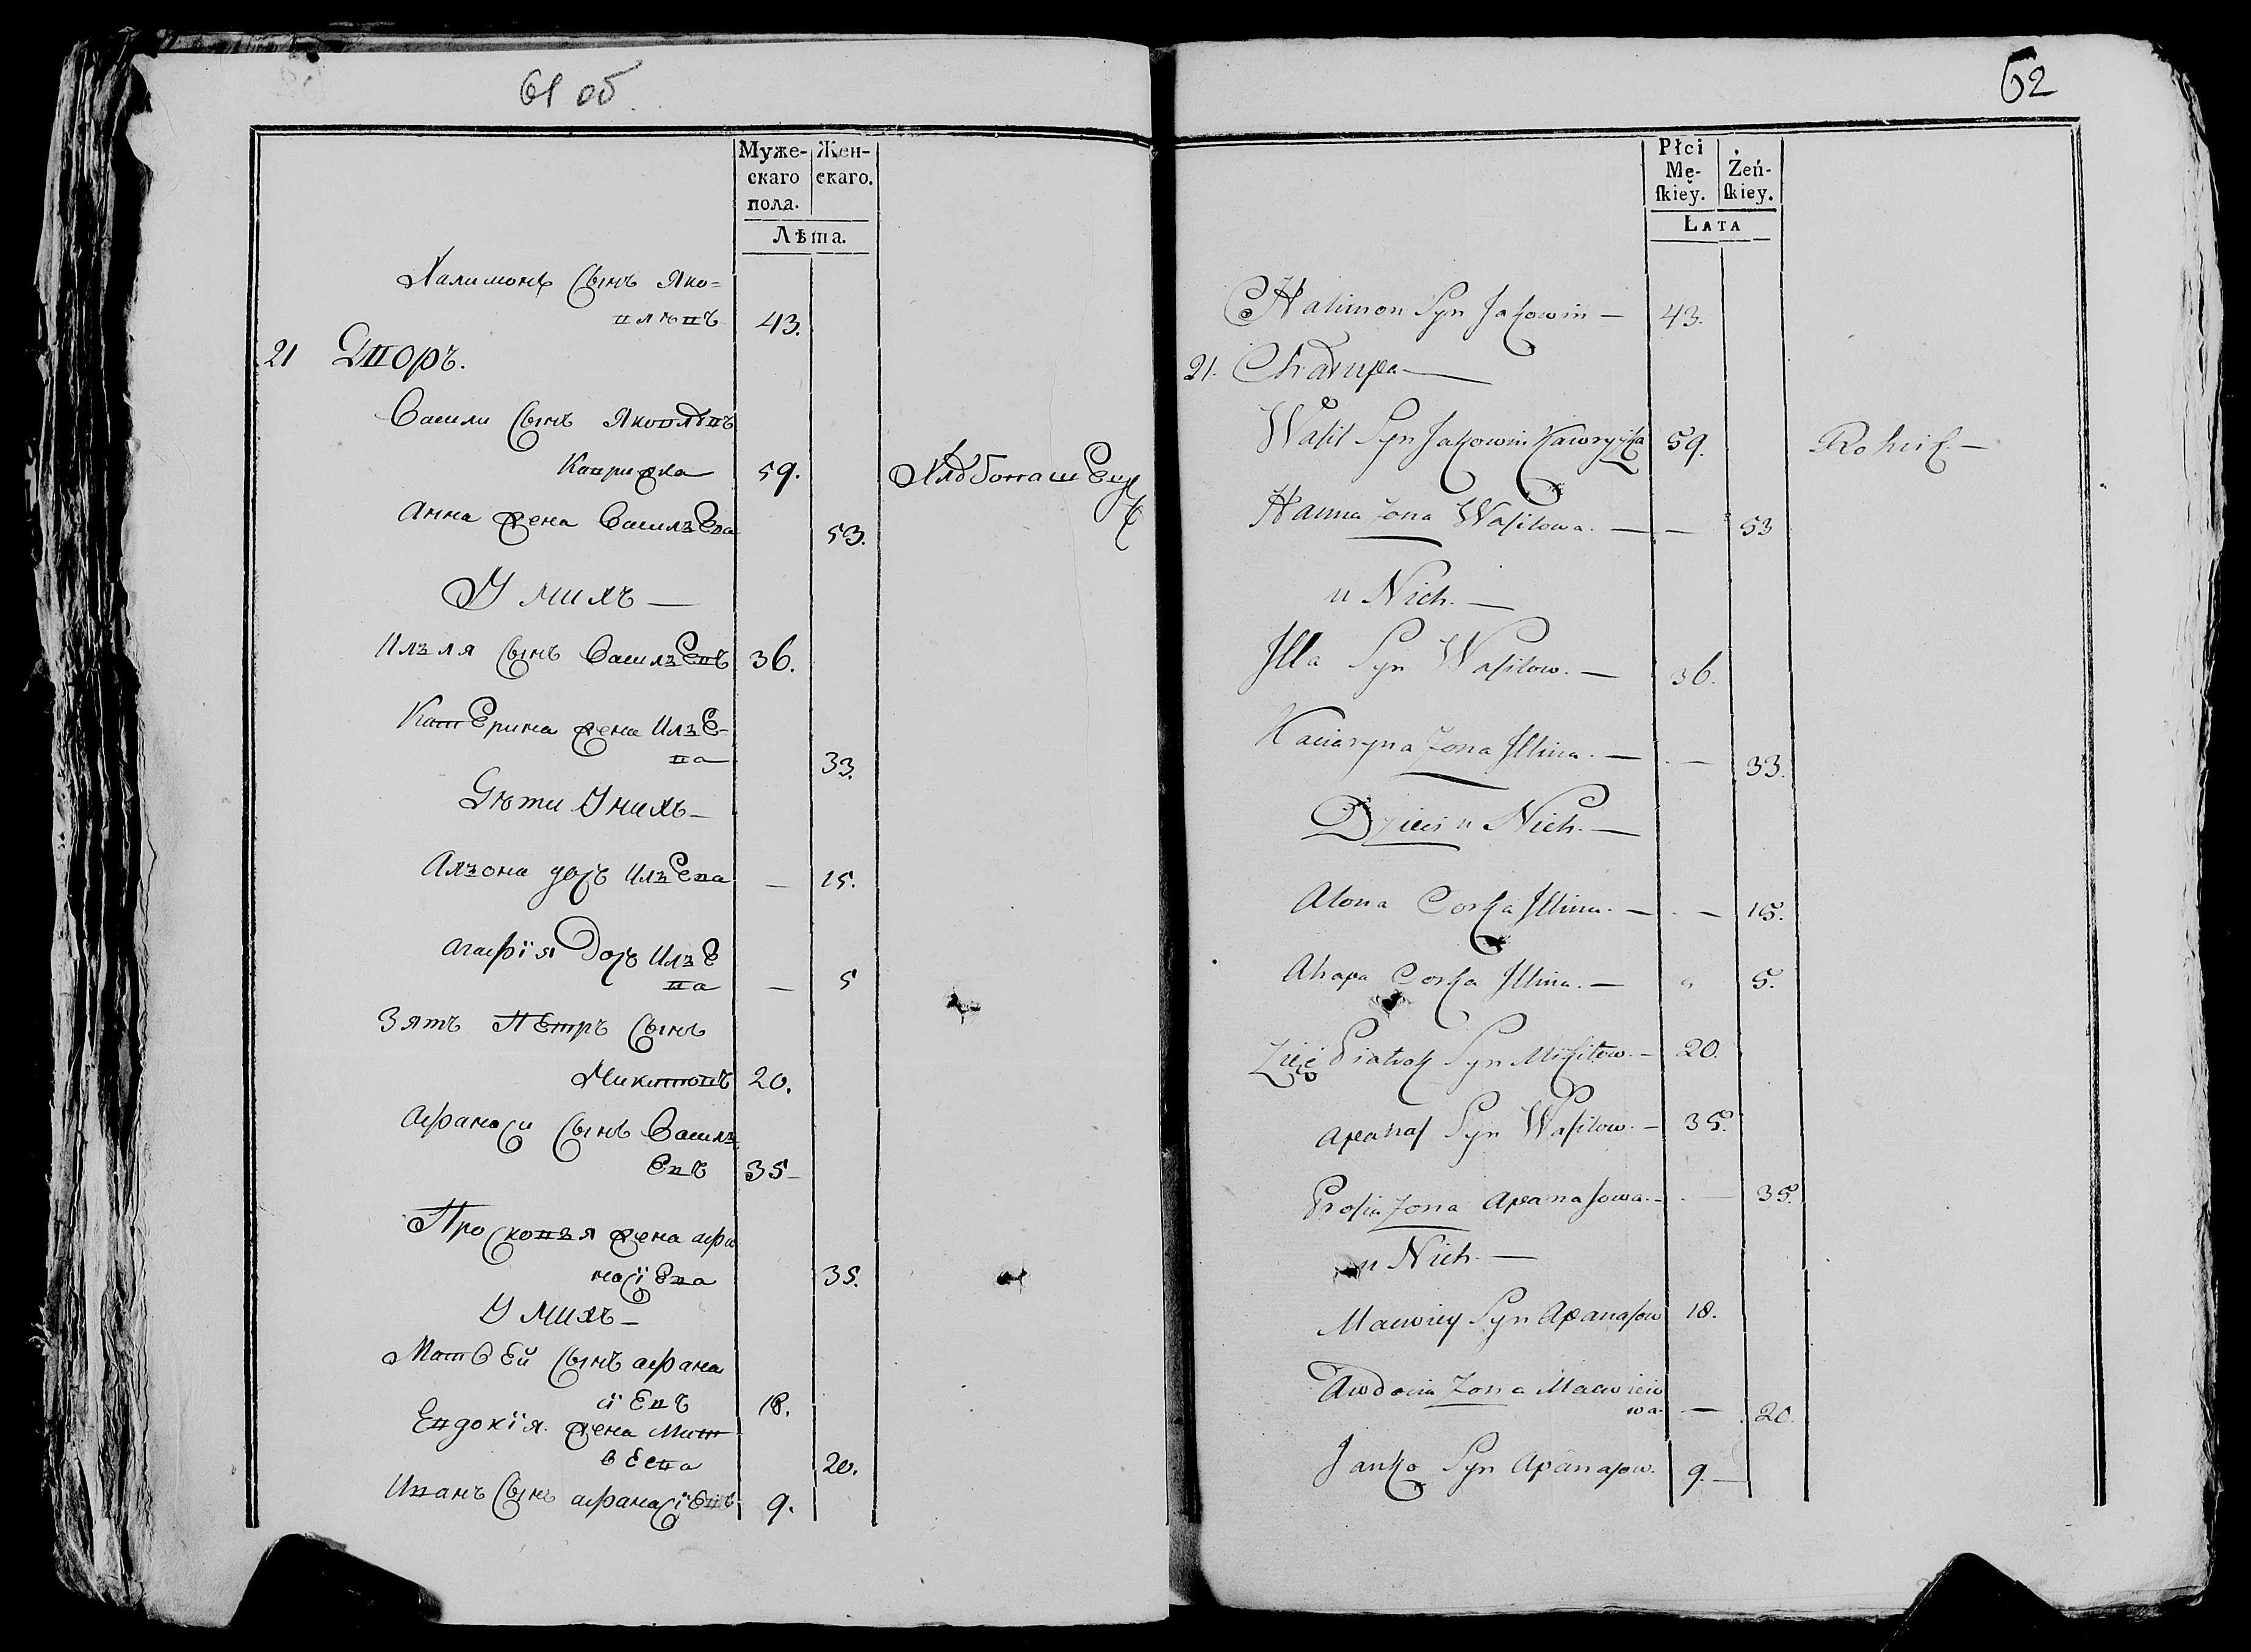 61 об.
Муже-
скаго
пола.
Жен-
скаго.
Лѣта.
Халимонъ Сынъ Яко-
влѣвъ 43.
21 Дворъ.
Васили Сынъ Яковлѣвъ
Каврижка 59. Хлѣбопашецъ
Анна жена Васильева 53.
У нихъ —
Илья Сынъ Васильевъ 36.
Катерина жена Илье-
ва 33.
Дѣти У нихъ —
Альона дочь Ильева — 15.
Агафія Дочь Илье
ва — 5
Зять Петръ Сынъ
Микитовъ 20.
Афанаси Сынъ Василь
евъ 35 —
Просковья жена афа
насіева 35.
У нихъ —
Матвей Сынъ афана
сіевъ 18.
Евдокія жена Мат
веева 20.
Иванъ Сынъ афанасіевъ 9.
62
Płci
Mę-
ſkiey.
Żeń-
ſkiey.
Lata
Halimon Syn Jakowin — 43.
21. Chałupa —
Wasil Syn Jakowin Kawryżka 59. Rolnik —
Hanna Zona Wasilowa. — — 53
u Nich. —
Illa Syn Wasilow. — 36.
Kaciaryna Zona Illina. — — 33.
Dzieci u Nich. —
Alona Corka Illina. — — 15.
Ahapa Corka Illina. — 5.
Zięć Piatrok Syn Mikitow. — 20.
Apanas Syn Wasilow. — 35.
Prosia Zona Apanasowa. — — 35.
u Nich. —
Maciwiey Syn Apanasow 18.
Awdocia Zona Maciwieio
wa. — 20.
Janko Syn Apanasow. 9. —